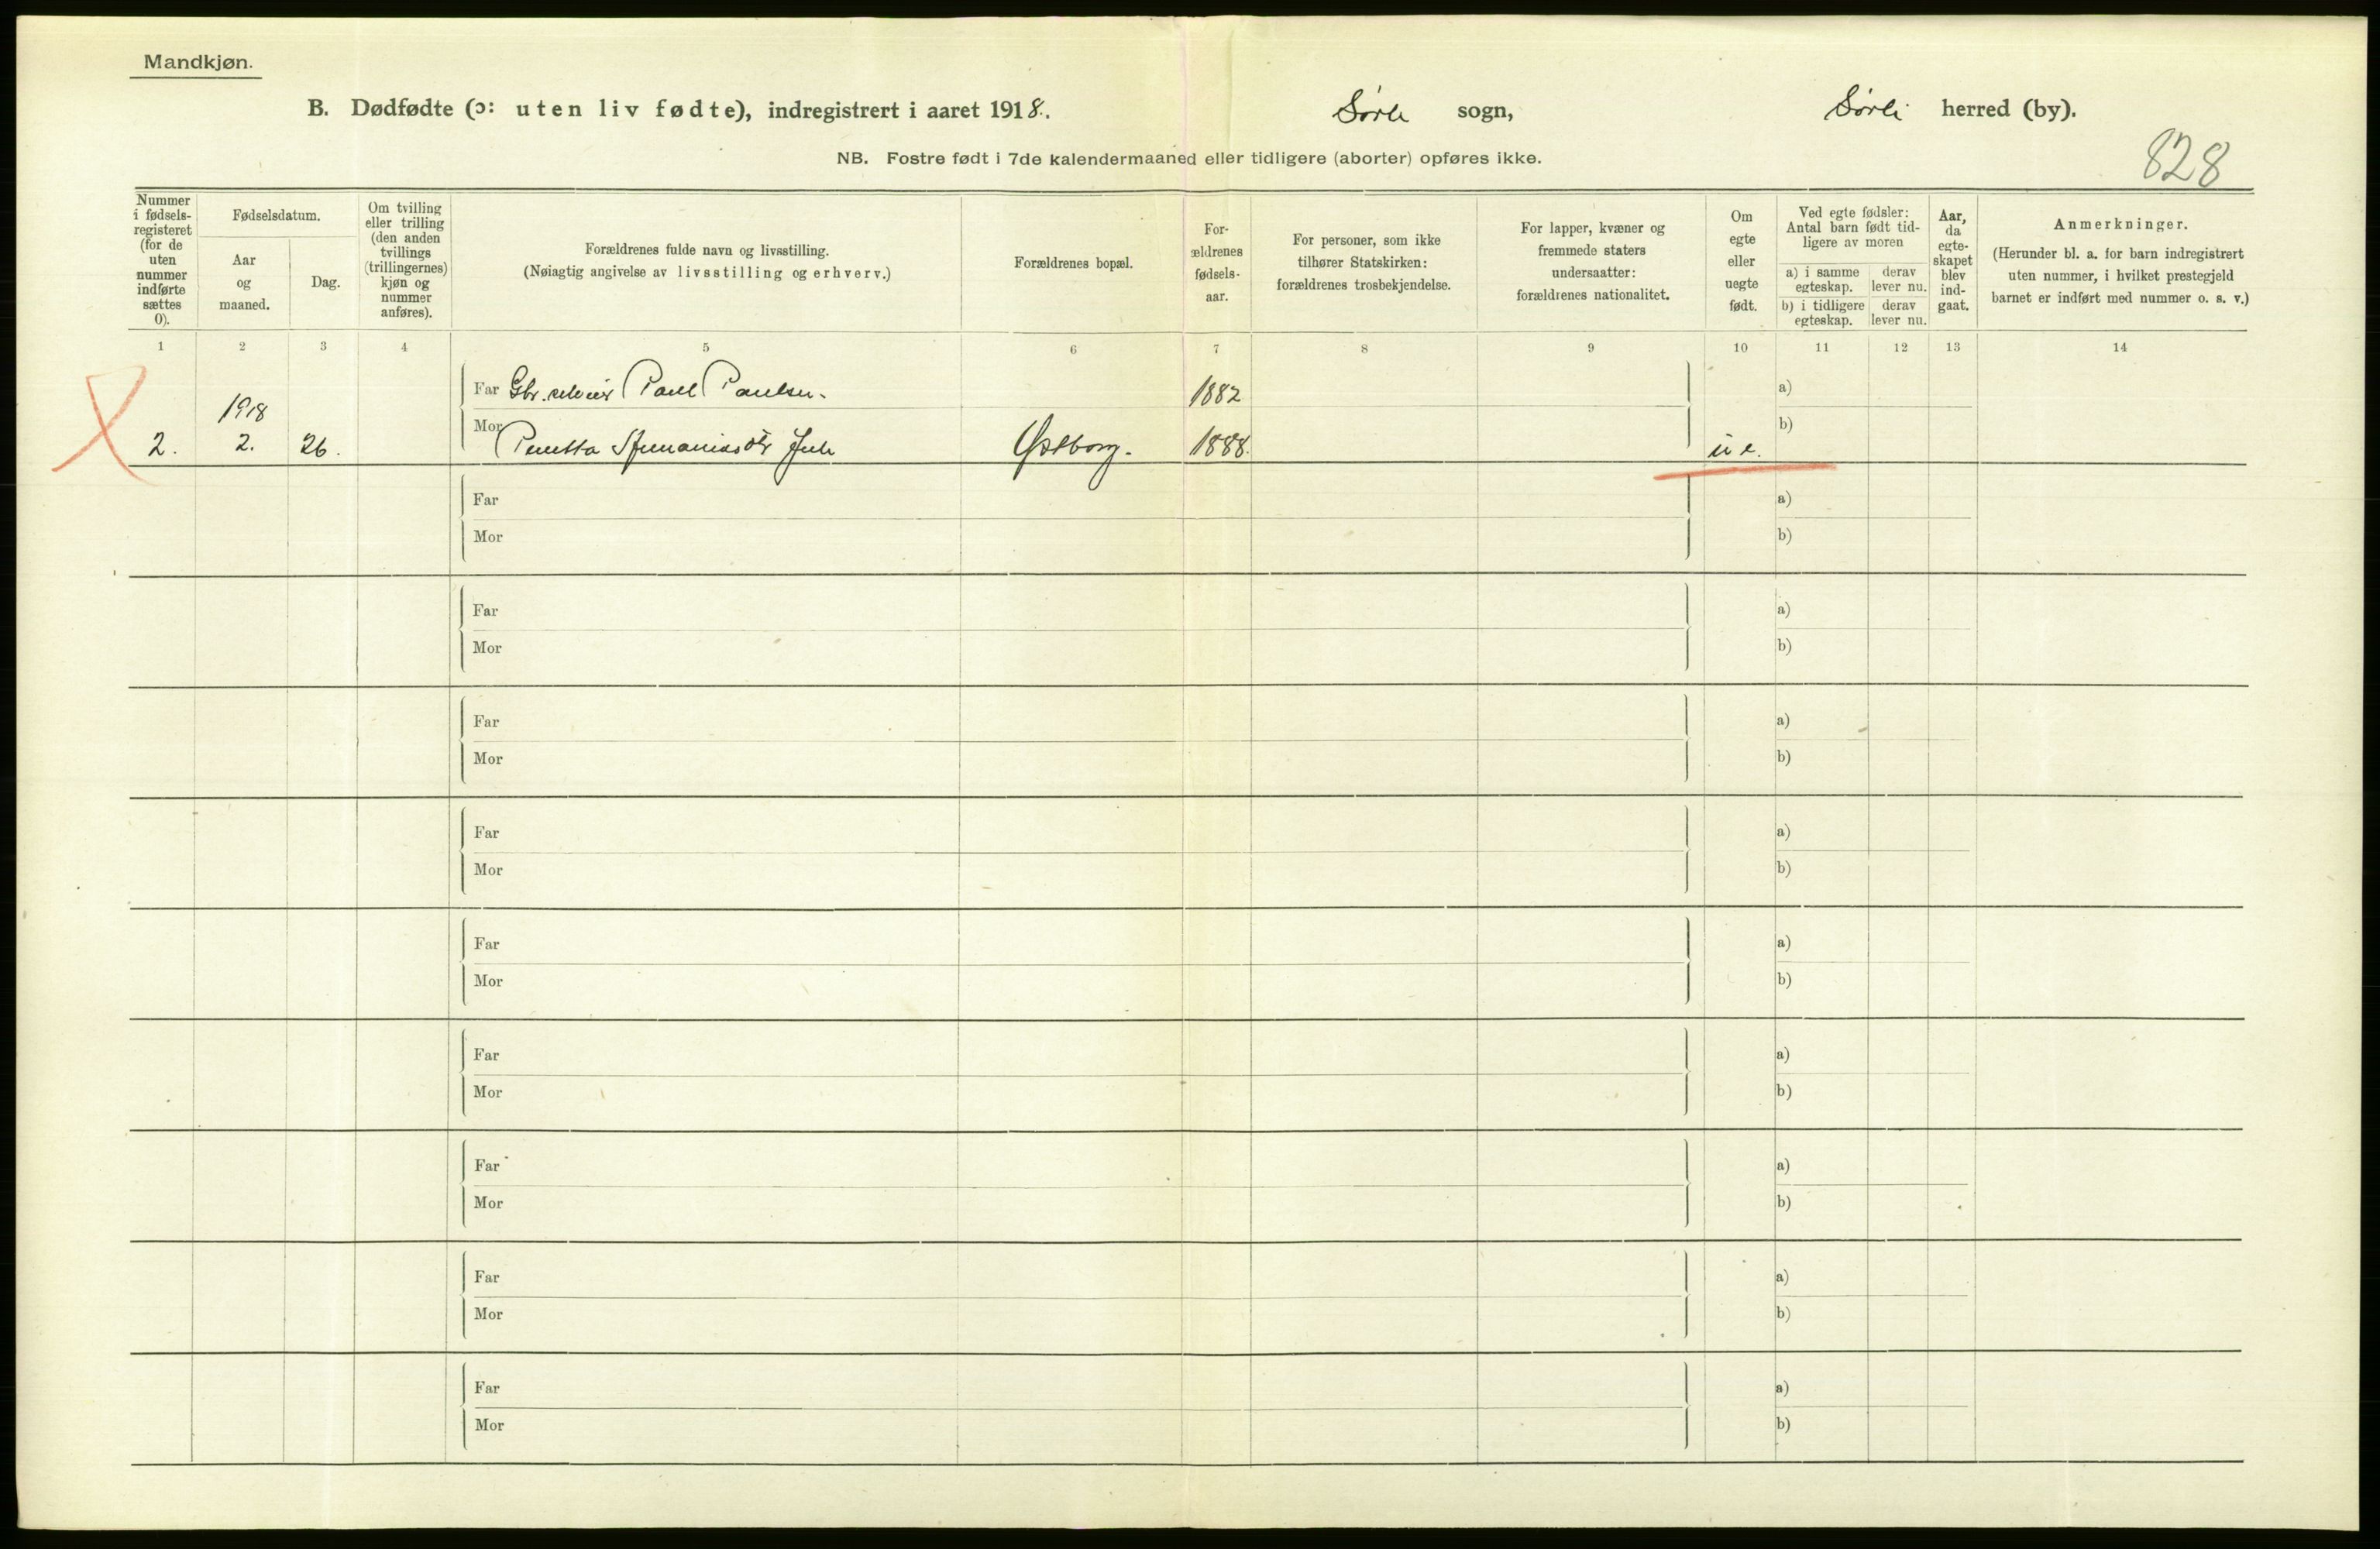 Mandkjøn.
B. Dødfødte (ɔ: uten liv fødte), indregistrert i aaret 1918. Sørli sogn, Sørli herred (by).
828
NB. Fostre født i 7de kalendermaaned eller tidligere (aborter) opføres ikke.
Nummer
i fødsels-
registeret
(for de
uten
nummer
indførte
sættes
0).
Fødselsdatum.
Aar
og
maaned.
Dag.
Om tvilling
eller trilling
(den anden
tvillings
(trillingernes)
kjøn og
nummer
anføres).
Forældrenes fulde navn og livsstilling.
(Nøiagtig angivelse av livsstilling og erhverv.)
Forældrenes bopæl.
For-
ældrenes
fødsels-
aar.
For personer, som ikke
tilhører Statskirken:
forældrenes trosbekjendelse.
For lapper, kvæner og
fremmede staters
undersaatter:
forældrenes nationalitet.
Om
egte
eller
uegte
født.
Ved egte fødsler:
Antal barn født tid-
ligere av moren
a) i samme
egteskap.
derav
lever nu.
b) i tidligere
egteskap.
derav
lever nu.
Aar,
da
egte-
skapet
blev
ind-
gaat.
Anmerkninger.
(Herunder bl. a. for barn indregistrert
uten nummer, i hvilket prestegjeld
barnet er indført med nummer o. s. v.)
1 2 3 4 5 6 7 8 9 10 11 12 13 14
Far Gbr. Paul Paulsen. 1882 a)
1918
2. 2. 26. Mor Østborg. 1888. u e. b)
Far a)
Mor b)
Far a)
Mor b)
Far a)
Mor b)
Far a)
Mor b)
Far a)
Mor b)
Far a)
Mor b)
Far a)
Mor b)
Far a)
Mor b)
Far a)
Mor b)